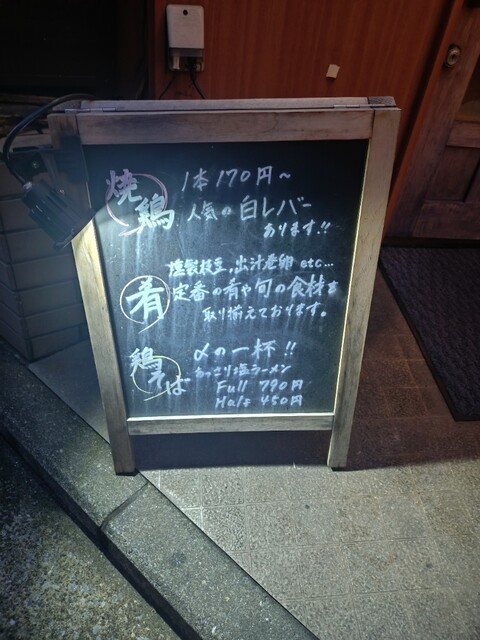 焼鶏
1本170円～
人気の白レバー
あります!!
肴
燻製枝豆,出汁巻卵 etc...
定番の肴や旬の食材を
取り揃えております。
鶏そば
〆の一杯!!
あっさり塩ラーメン
Full 790円
Half 450円